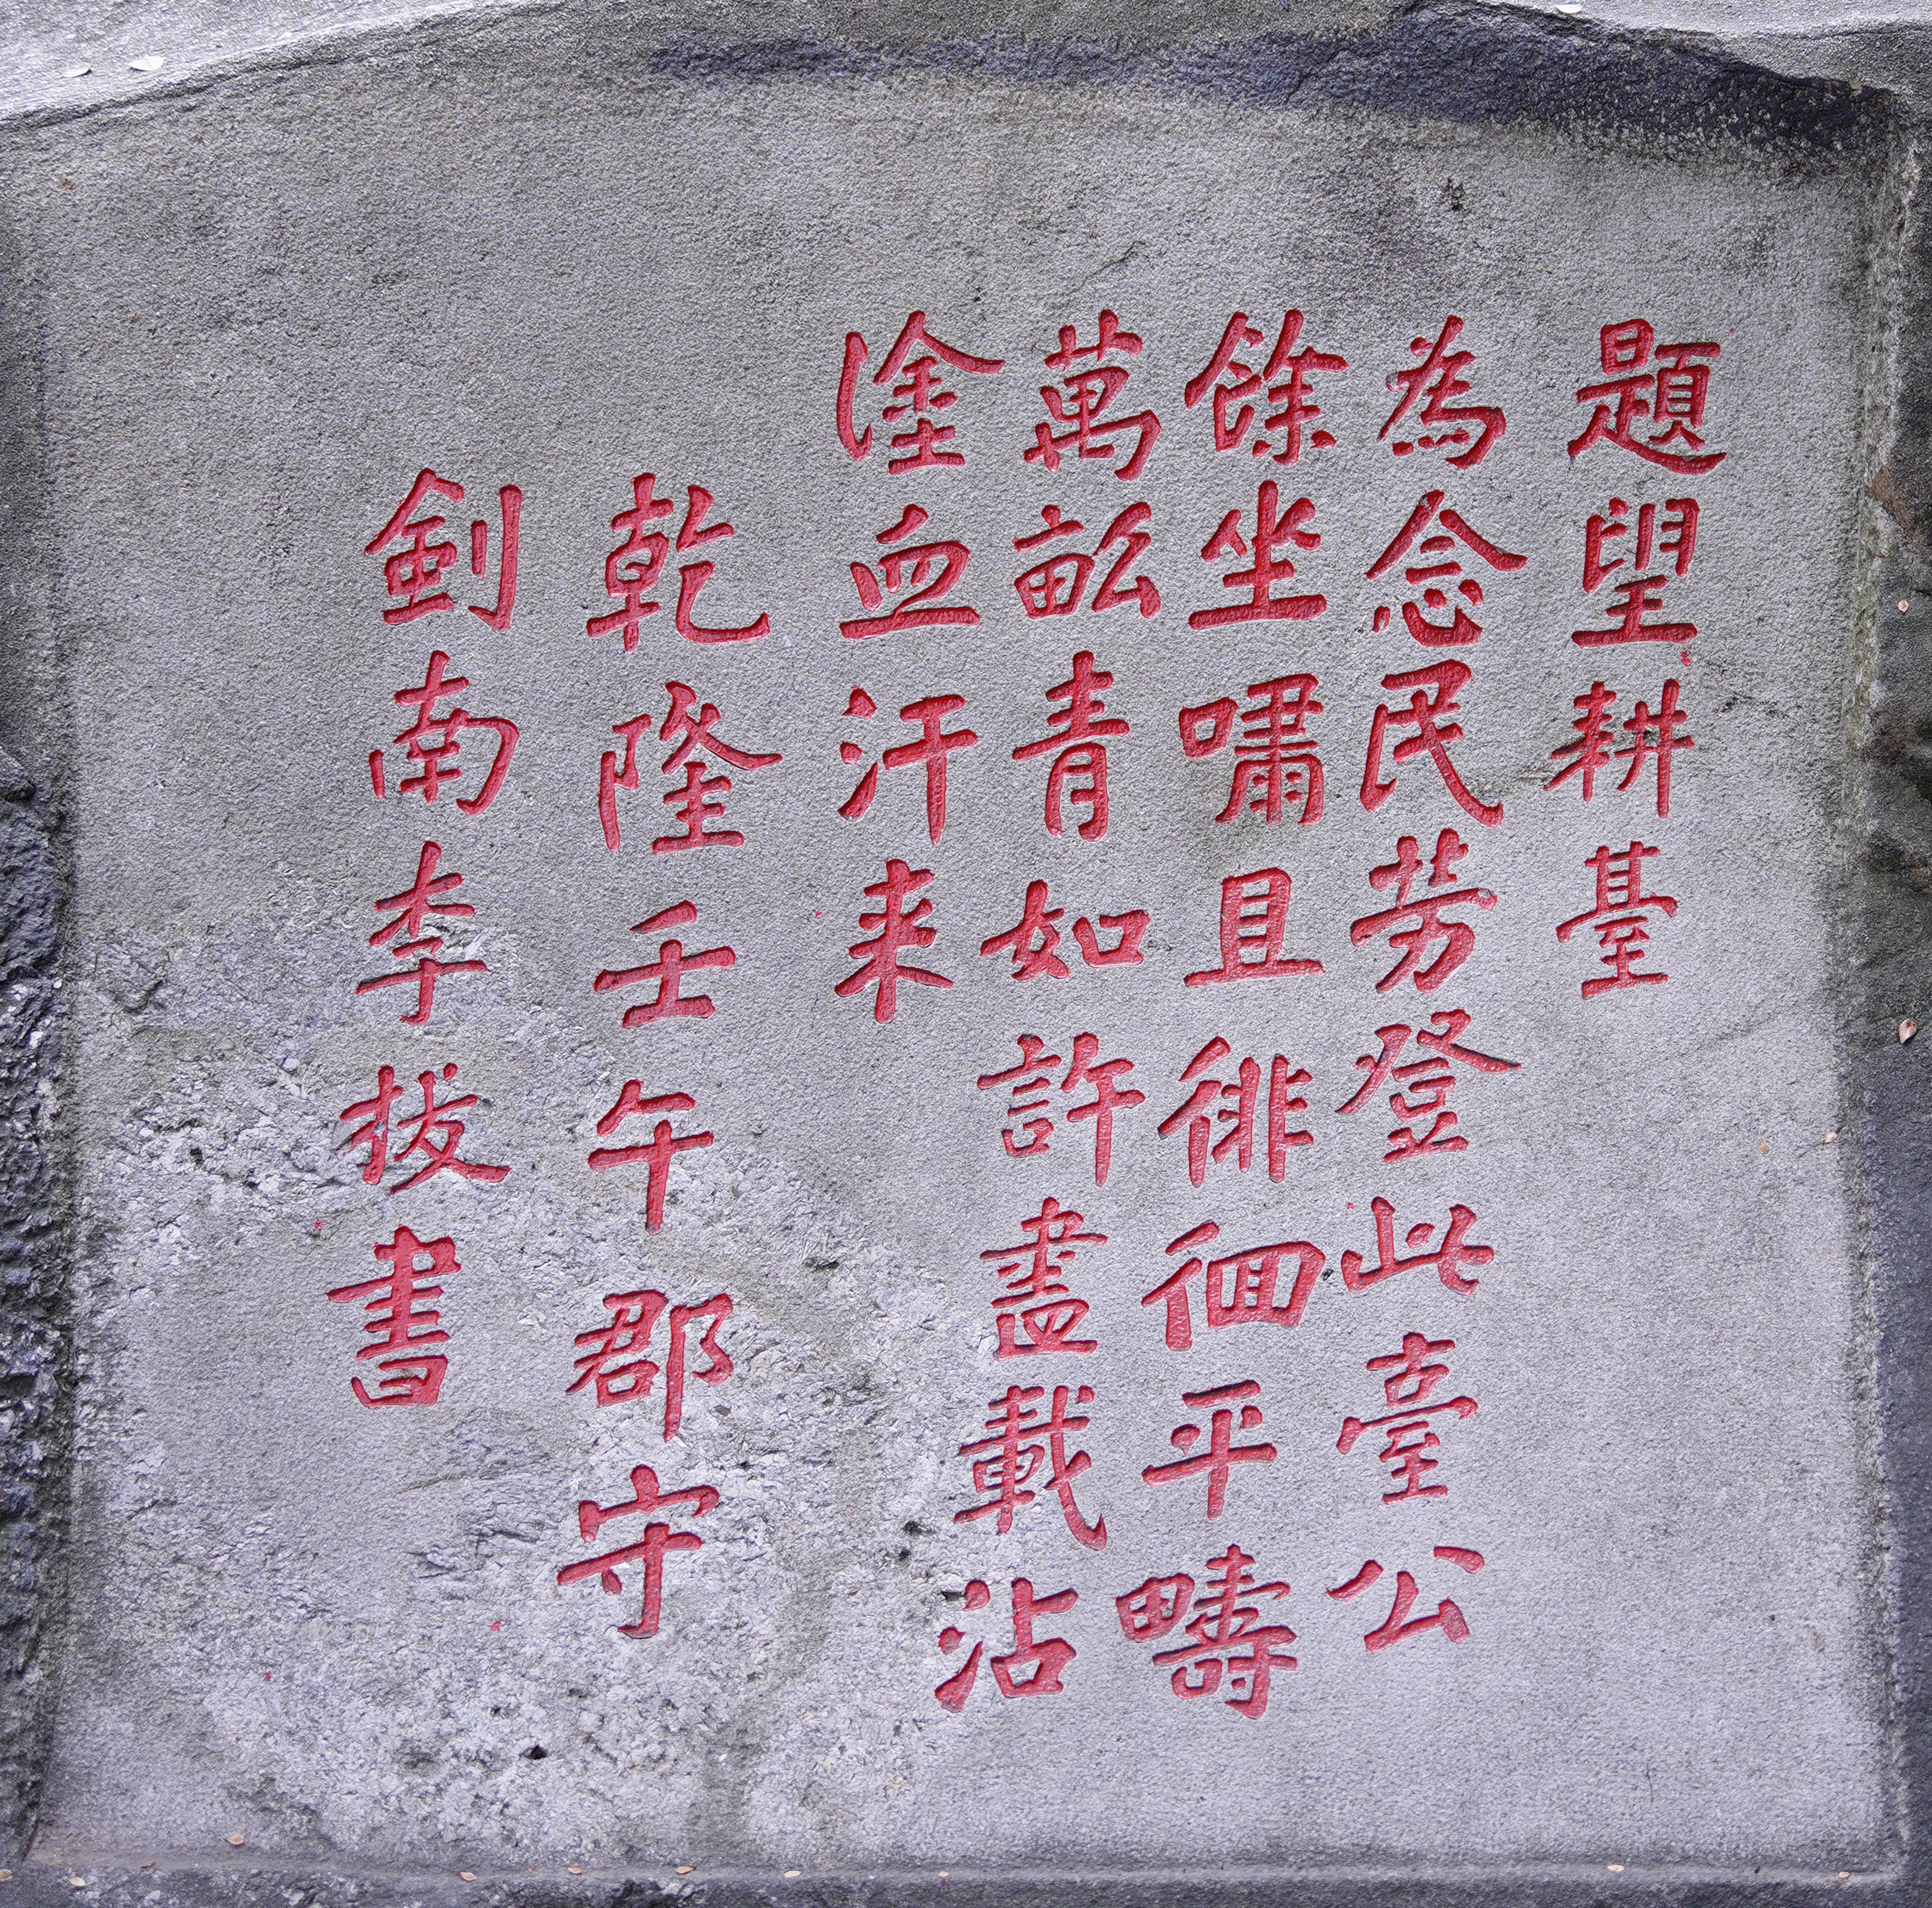 題望耕臺
為念民劳登此臺公
餘坐嘯且徘徊平疇
萬畝青如許盡載沾
塗血汗来
乾隆壬午郡守
劍南李拔書